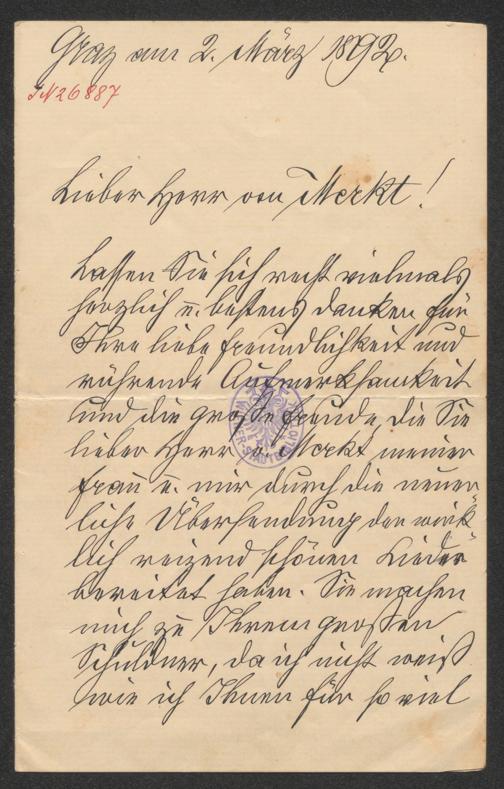 Graz am 2. März 1892.
IN 26887
Lieber Herr von Merkt!
Lassen Sie sich recht vielmals
herzlich u. bestens danken für
Ihre liebe Freundlichkeit und
rührende Aufmerksamkeit
und die große Freude, die Sie
lieber Herr v. Merkt meiner
Frau u. mir durch die neuer-
liche Übersendung der wirk-
lich reizend schönen Lieder
bereitet haben. Sie machen
mich zu Ihrem großen
Schuldner, da ich nicht weiß
wie ich Ihnen für so viel